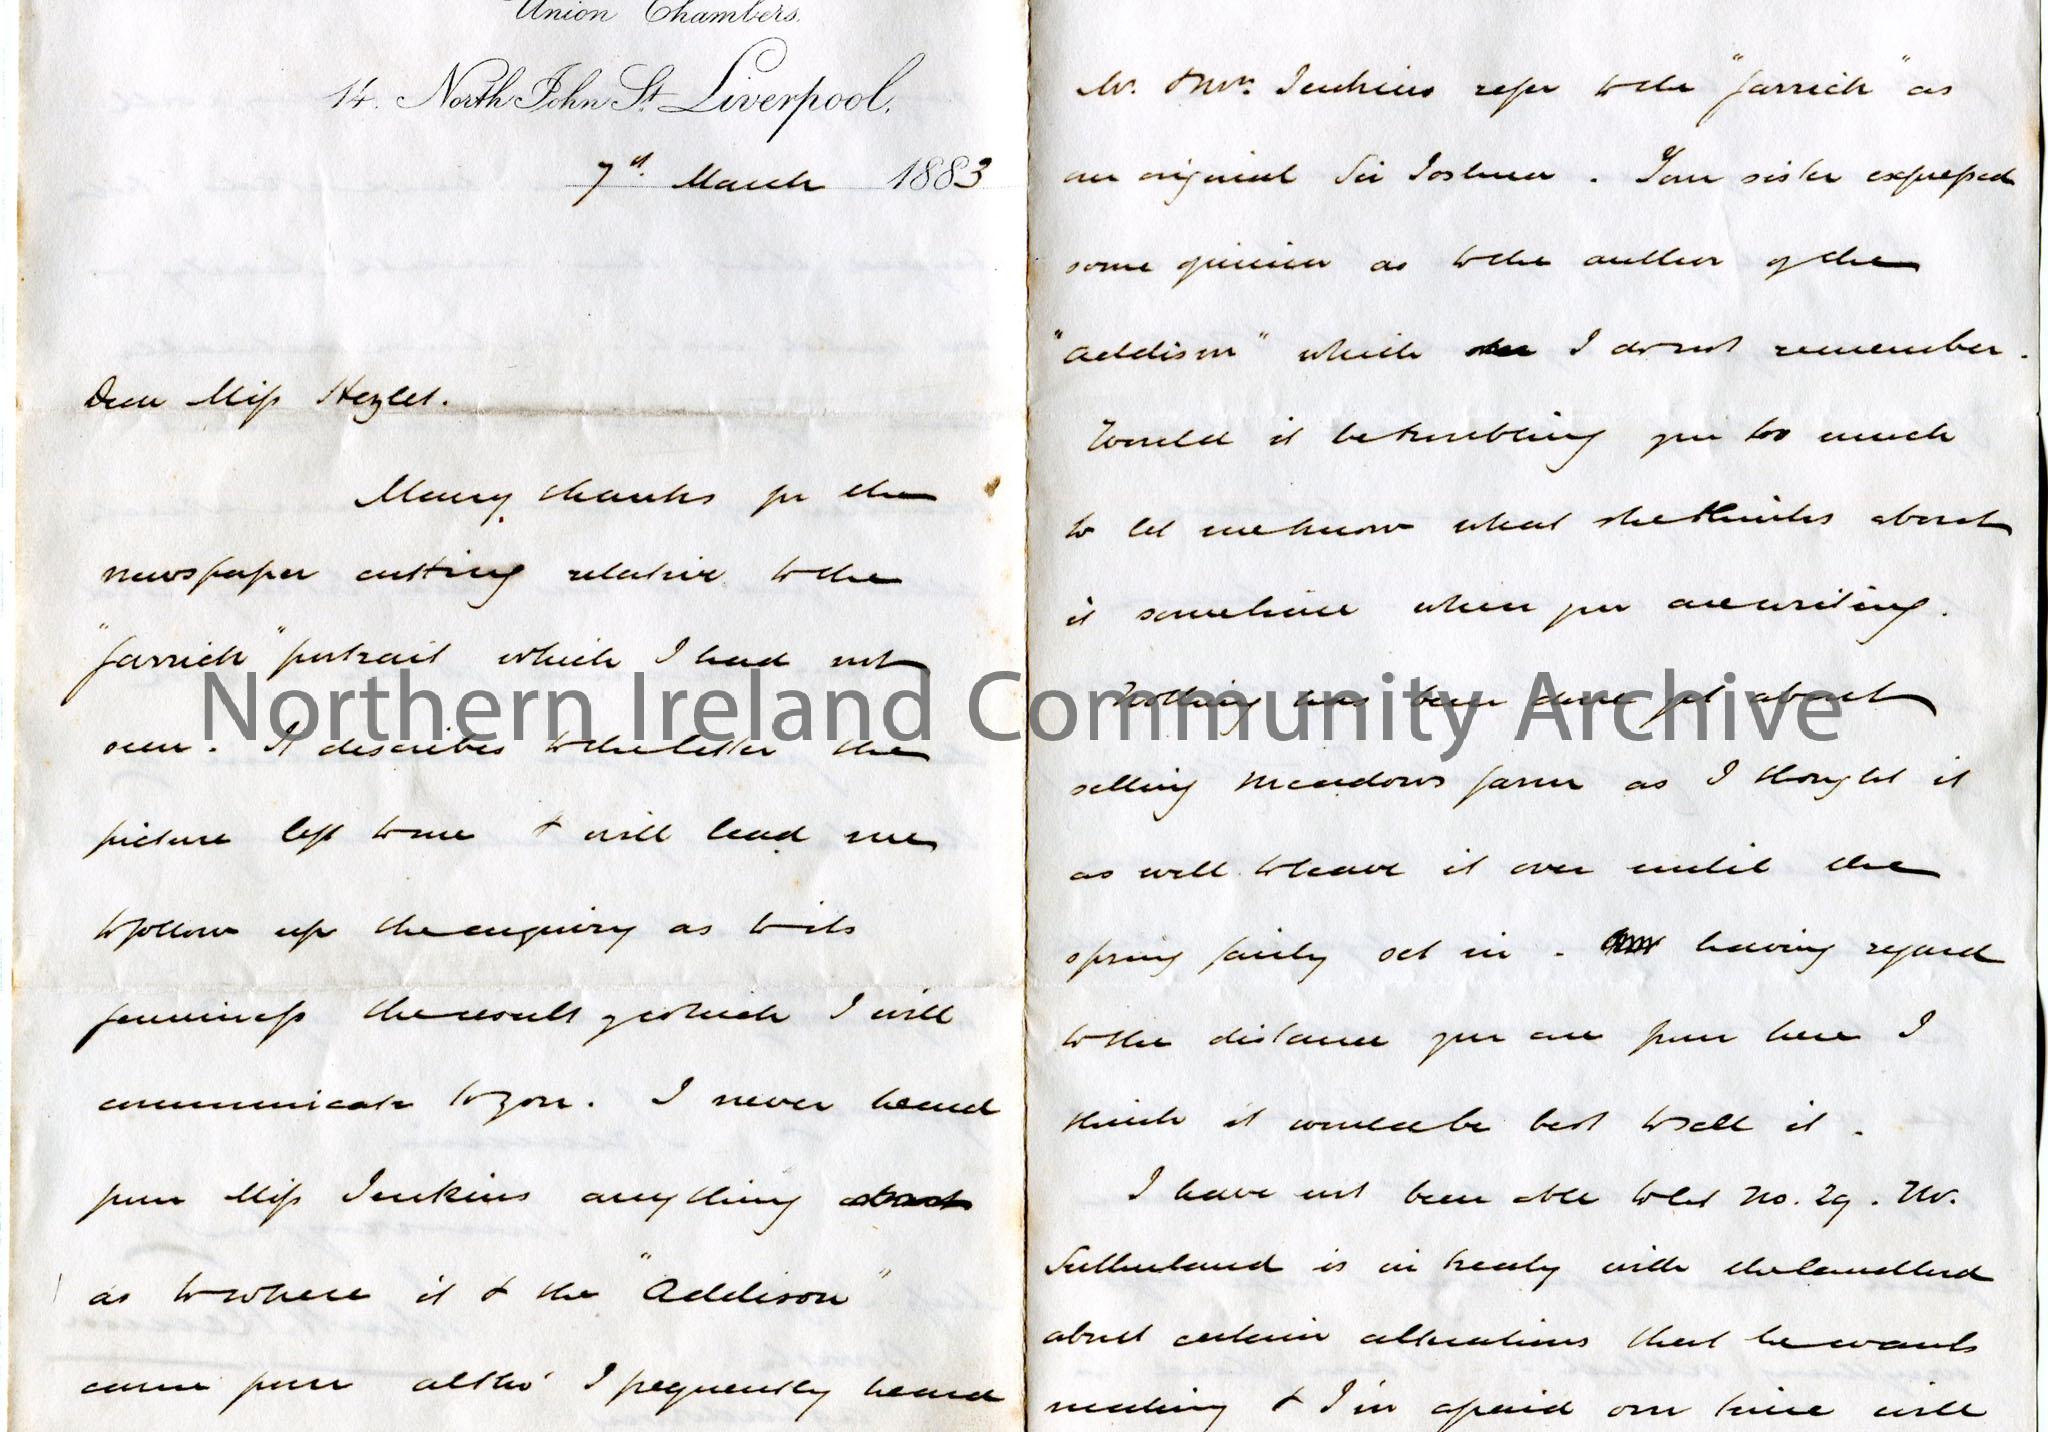 Union Chambers.
14. North John St. Liverpool.
7th. March 1883
Dear Miss Hezlet.
Many thanks for the
newspaper cutting relative to the
"Garrick" portrait which I had not
seen. It describes to the letter the
picture left to me & will lead me
to follow up the enquiry as to its
genuineness the result of which I will
communicate to you. I never heard
from Miss Jenkins anything about
as to where it & the "Addison"
came from altho' I frequently heard
Mr. & Mrs. Jenkins refer to the "Garrick" as
an original Sir Joshua. Your sister expressed
some opinion as to the author of the
"Addison" which I do not remember.
Would it be troubling you too much
to let me know what she thinks about
it sometime when you are writing.
Nothing has been done yet about
selling Meadows farm as I thought it
as well to leave it over until the
spring fairly set in. having regard
to the distance you are from here I
think it would be best to sell it.
I have not been able to let No. 29. Mr.
Sutherland is in treaty with the landlord
about certain alterations that he wants
making & I'm afraid our time will
Northern Ireland Community Archive